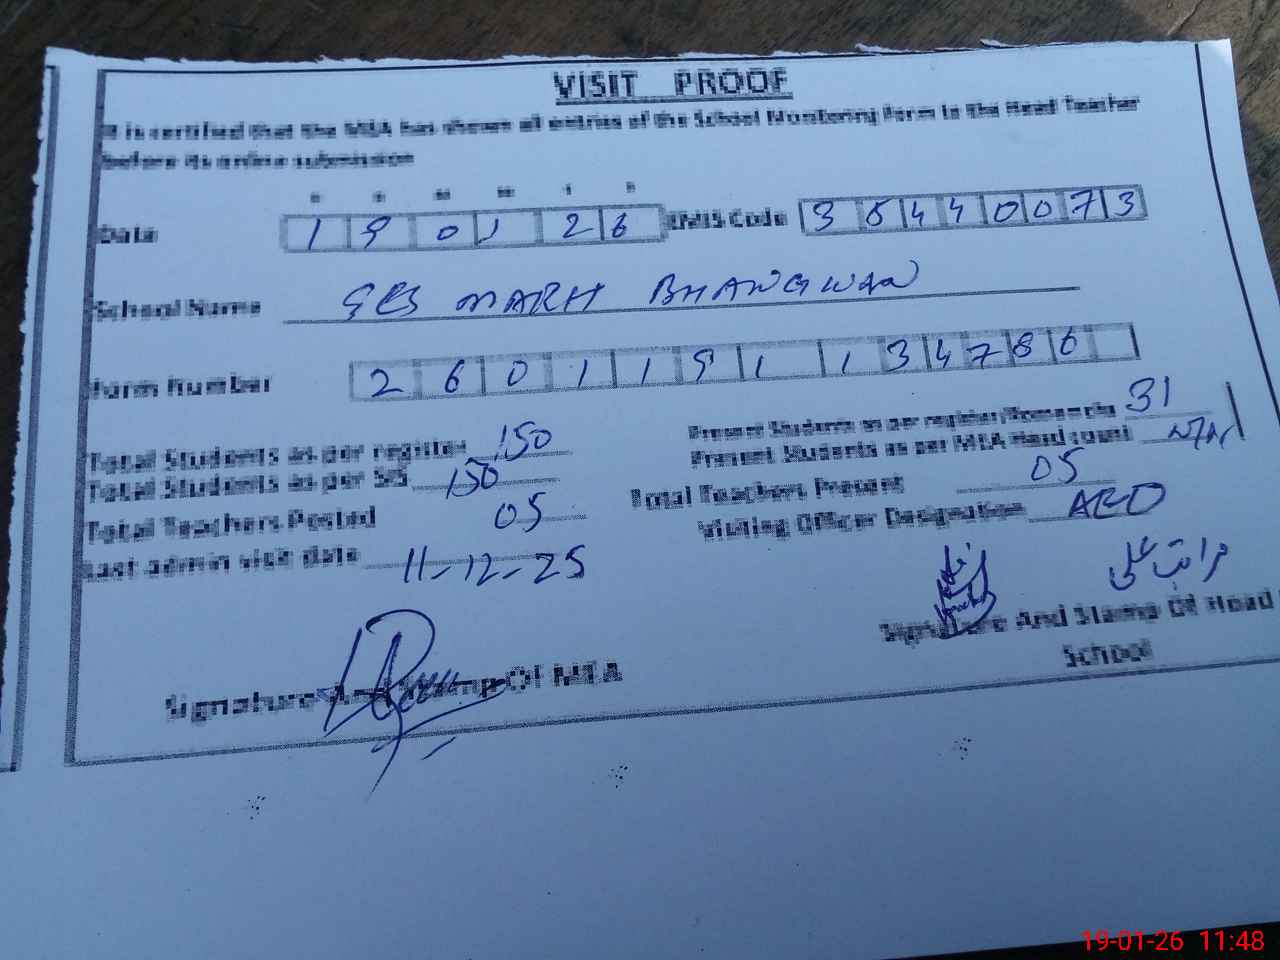 VISIT PROOF
It is certified that the MEA has shown all entries of the School Monitoring Form to the Head Teacher
before its online submission
D D M M Y Y
Date 1 9 0 1 2 6 EMIS Code 3 5 4 4 0 0 7 3
School Name GES MARH BHANGWAN
Form Number 2 6 0 1 1 9 1 1 3 4 7 8 6
Total Students as per register 150 Present Students as per register/Homework 31
Total Students as per SIS 150 Present Students as per MEA Head count N/A
Total Teachers Posted 05 Total Teachers Present 05
Last admin visit date 11-12-25 Visiting Officer Designation AEO
Signature And Stamp Of MEA Signature And Stamp Of Head
School
19-01-26 11:48